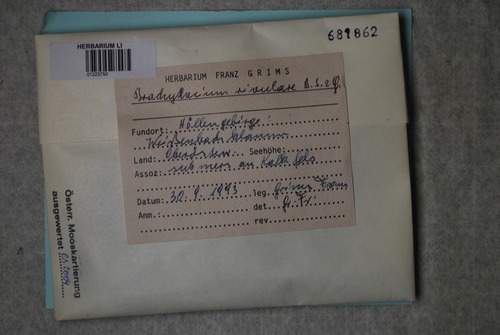 HERBARIUM LI
01223750
689862
HERBARIUM FRANZ GRIMS
Brachythecium rivulare B.S. & G.
Fundort: Höllengebirge:
Weißenbachklamm
Land: Oberösterr. Seehöhe:
Assoz: submers an Kalkfels
Datum: 30.9.1993 leg. Grims Franz
Anm.: det. Gr. Fr.
rev.
Österr. Mooskartierung
ausgewertet